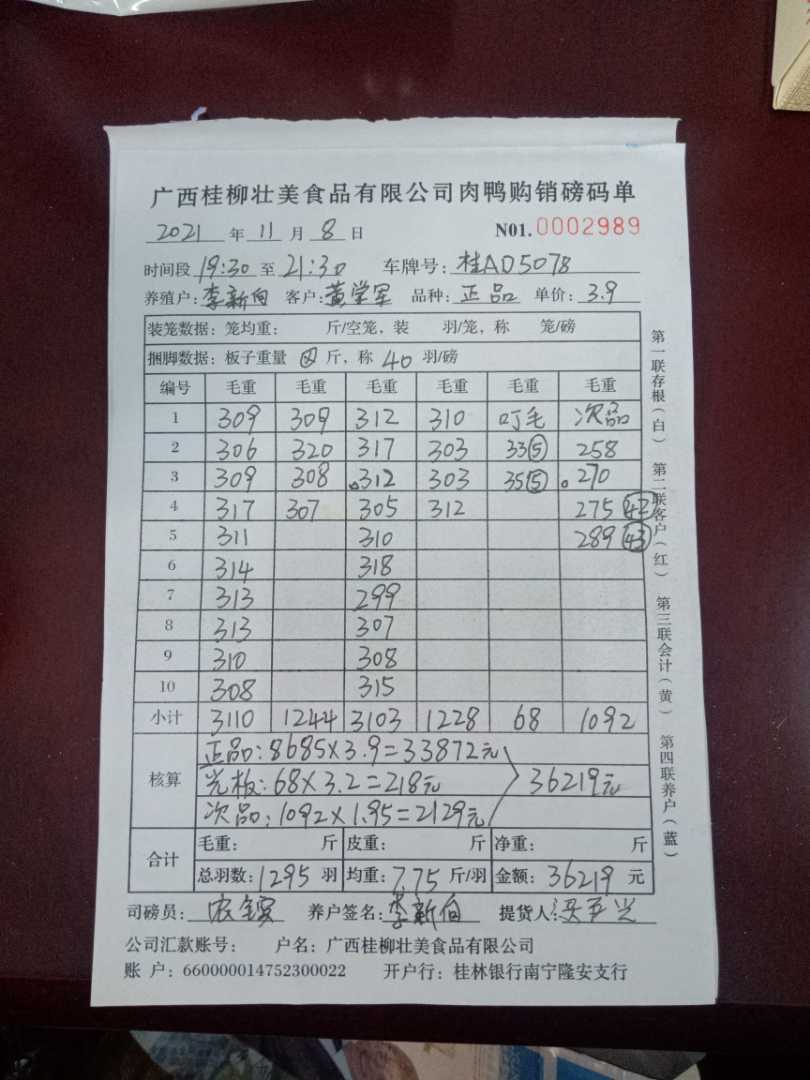 广西桂柳壮美食品有限公司肉鸭购销磅码单
2021 年 11 月 8 日 N01.0002989
时间段 19:30 至 21:30 车牌号: 桂AD5078
养殖户: 李新向 客户: 黄学军 品种: 正品 单价: 3.9
装笼数据: 笼均重: 斤/空笼, 装 羽/笼, 称 笼/磅
捆脚数据: 板子重量 斤, 称 40 羽/磅
编号 毛重 毛重 毛重 毛重 毛重 毛重
1 309 309 312 310 叮毛 次品
2 306 320 317 303 33⑤ 258
3 309 308 312 303 35⑤ 270
4 317 307 305 312 275 ㊷
5 311 310 289 ㊸
6 314 318
7 313 299
8 313 307
9 310 308
10 308 315
小计 3110 1244 3103 1228 68 1092
核算
正品: 8685×3.9=33872元
光板: 68×3.2=218元
次品: 1092×1.95=2129元
36219元
合计
毛重: 斤 皮重: 斤 净重: 斤
总羽数: 1295 羽 均重: 7.75 斤/羽 金额: 36219 元
司磅员: 养户签名: 李新向 提货人:
公司汇款账号: 户名: 广西桂柳壮美食品有限公司
账 户: 660000014752300022 开户行: 桂林银行南宁隆安支行
第一联存根(白) 第二联客户(红) 第三联会计(黄) 第四联养户(蓝)